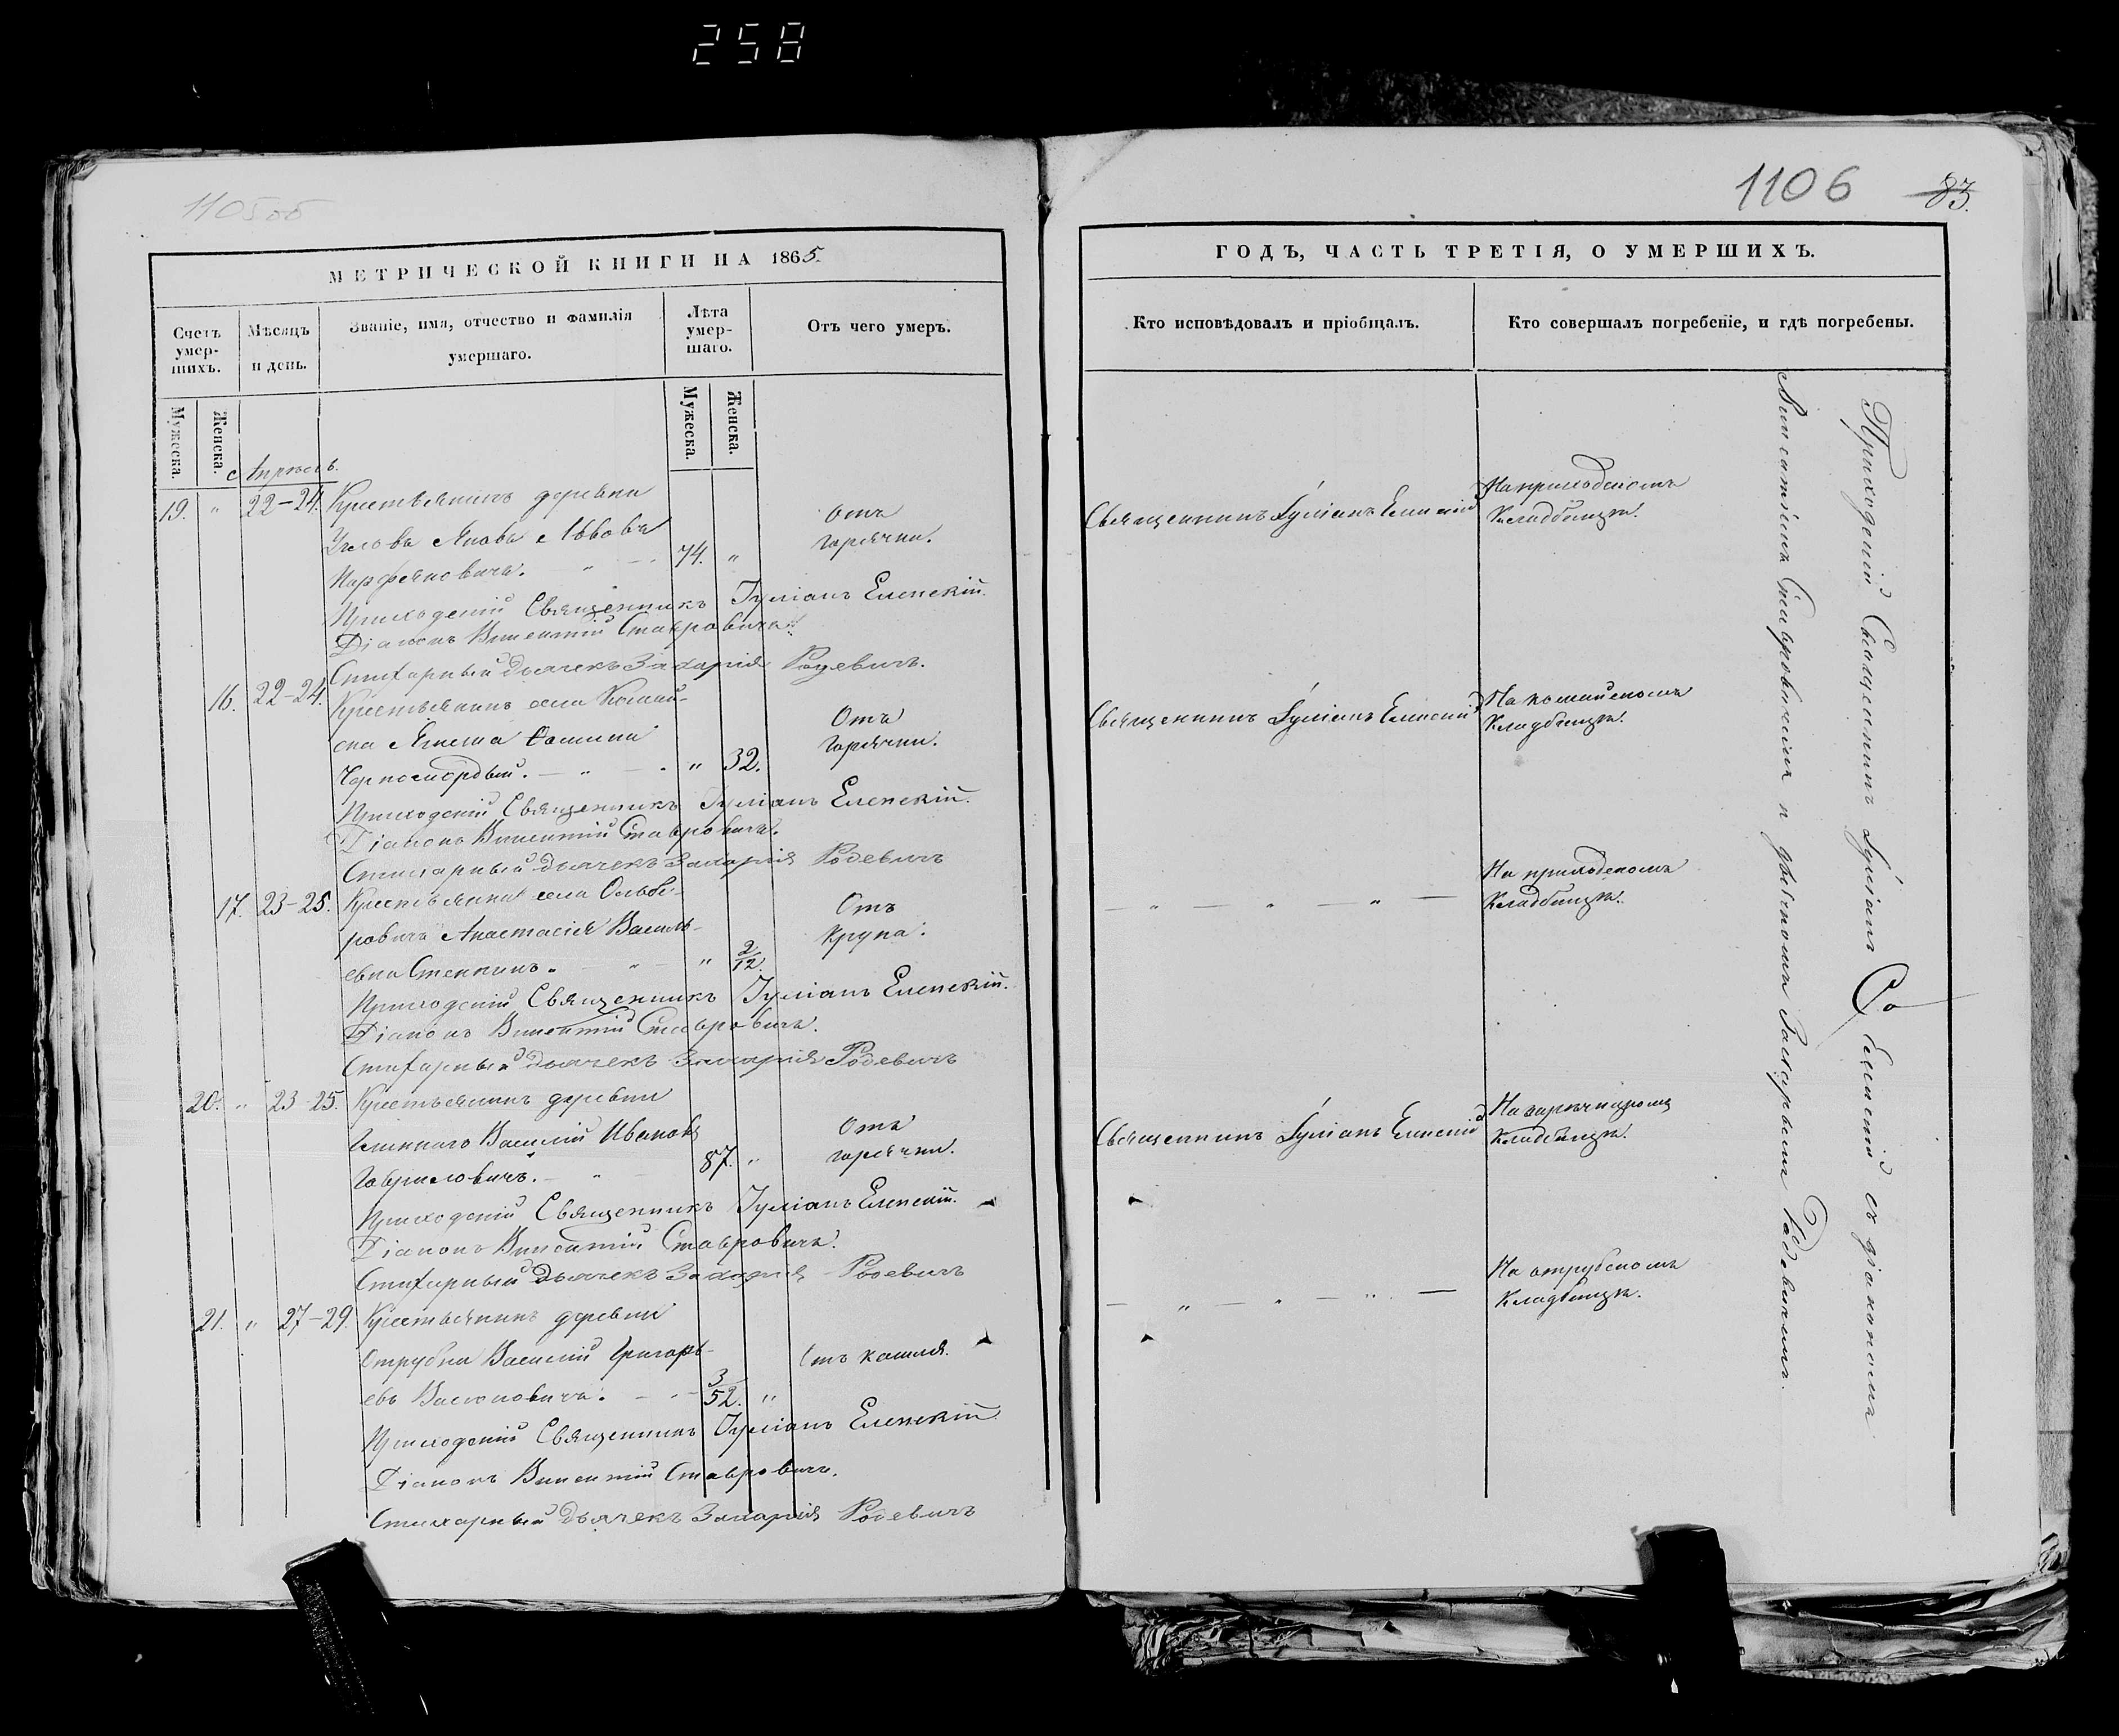 258
1105об
МЕТРИЧЕСКОЙ КНИГИ НА 1865.
Счетъ умер-шихъ.
Мѣсяцъ и день.
Званіе, имя, отчество и фамилія умершаго.
Лѣта умер-шаго.
Отъ чего умеръ.
Мужеска.
Женска.
Мужеска.
Женска.
Апрѣль.
19. " 22-24. Крестьянинъ деревни
Яковъ Львовъ
Парфеновичъ. 74. "
Отъ
горячки.
Приходскій Священникъ Іуліанъ Еленскій.
Діаконъ Викентій Ставровичъ.
Стихарный Дьячекъ Захарія Родевичъ.
16. 22-24.
Отъ
горячки.
" 32.
Приходскій Священникъ Іуліанъ Еленскій.
Діаконъ Викентій Ставровичъ.
Стихарный Дьячекъ Захарія Родевичъ
17. 23-25. Крестьянка села Ольбе-
ровичъ Анастасія Василь-
евна " 2/12.
Отъ
крупа.
Приходскій Священникъ Іуліанъ Еленскій.
Діаконъ Викентій Ставровичъ.
Стихарный Дьячекъ Захарія Родевичъ
20. " 23-25. Крестьянинъ деревни
Василій Ивановъ
Гавриловичъ. 87. "
Отъ
горячки.
Приходскій Священникъ Іуліанъ Еленскій.
Діаконъ Викентій Ставровичъ.
Стихарный Дьячекъ Захарія Родевичъ
21. " 27-29. Крестьянинъ деревни
Отрубка Василій Григорь-
евъ 3/52. "
Отъ кашля.
Приходскій Священникъ Іуліанъ Еленскій
Діаконъ Викентій Ставровичъ.
Стихарный Дьячекъ Захарія Родевичъ
1106 83.
ГОДЪ, ЧАСТЬ ТРЕТІЯ, О УМЕРШИХЪ.
Кто исповѣдовалъ и пріобщалъ.
Кто совершалъ погребеніе, и гдѣ погребены.
Священникъ Іуліанъ Еленскій
На приходскомъ
Кладбищѣ.
Священникъ Іуліанъ Еленскій
Кладбищѣ.
— " — " — " —
На приходскомъ
Кладбищѣ.
Священникъ Іуліанъ Еленскій
Кладбищѣ.
— " — " — " —
На отрубскомъ
Кладбищѣ.
Приходскій Священникъ Іуліанъ Еленскій съ діакономъ
Викентіемъ Ставровичемъ и дьячкомъ Захаріемъ Родевичемъ.